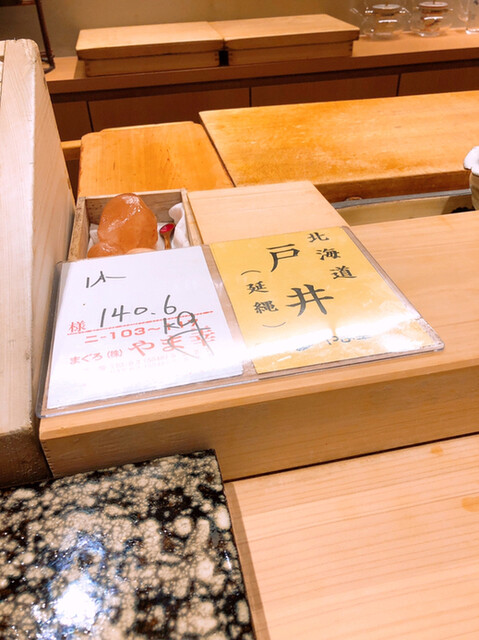 140.6
様 KG
ニ-103~
まぐろ(株)やま幸
北海道
戸井
(延縄)